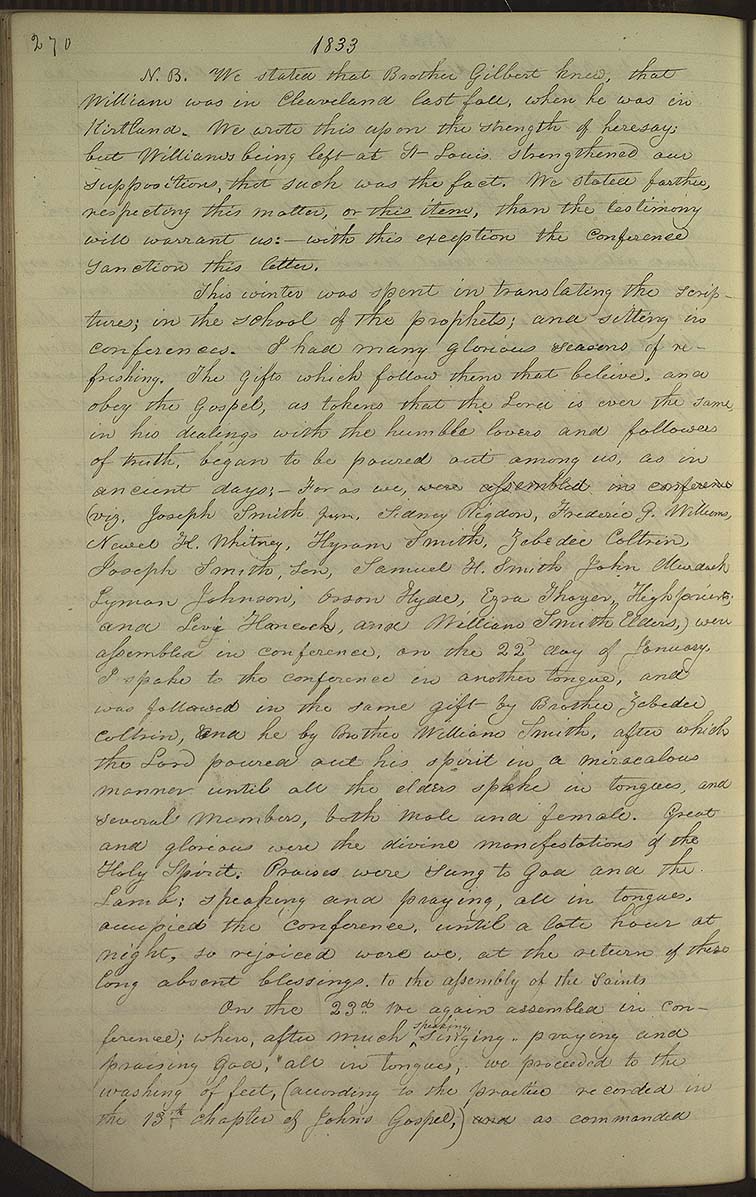 270 1833
N. B. We stated that Brother Gilbert knew, that
William was in Cleaveland last fall, when he was in
Kirtland. We wrote this upon the strength of heresay;
but William's being left at St Louis strengthened our
suppositions, that such was the fact. We stated farther,
respecting this matter, or this item, than the testimony
will warrant us:- with this exception the Conference
sanction this letter.
This winter was spent in translating the scrip-
tures; in the school of the prophets; and sitting in
conferences. I had many glorious seasons of re-
freshing. The gifts which follow them that beleive, and
obey the Gospel, as tokens that the Lord is ever the same,
in his dealings with the humble lovers and followers
of truth, began to be poured out among us, as in
ancient days;- For as we, were assembled in conference
(viz. Joseph Smith Jun, Sidney Rigdon, Frederic G. Williams,
Newel K. Whitney, Hyrum Smith, Zebedee Coltrin,
Joseph Smith, Sen, Samuel H. Smith John Murdock
Lyman Johnson, Orson Hyde, Ezra Thayer, High priests;
and Levi Hancock, and William Smith Elders,) were
assembled in conference, on the 22d day of January.
I spake to the conference in another tongue, and
was followed in the same gift by Brother Zebedee
Coltrin, and he by Brother William Smith, after which
the Lord poured out his spirit in a miraculous
manner until all the elders spake in tongues, and
several members, both male and female. Great
and glorious were the divine manifestations of the
Holy Spirit. Praises were sung to God and the
Lamb; speaking and praying, all in tongues,
occupied the conference, until a late hour at
night, so rejoiced were we, at the return of these
long absent blessings. to the assembly of the Saints
On the 23d we again assembled in con-
ference; when, after much speaking singing, praying and
praising God, all in tongues, we proceeded to the
washing of feet, (according to the practice recorded in
the 13th chapter of John's Gospel,) and as commanded